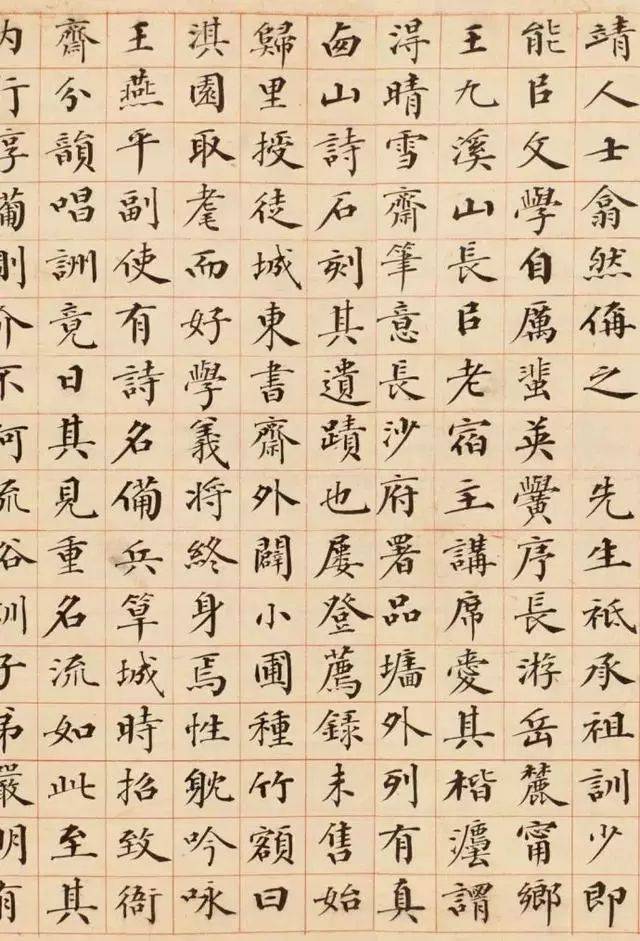 靖人士翕然偁之先生祇承祖訓少即
能㠯文學自厲蜚英黌序長游岳麓甯鄉
王九溪山長㠯老宿主講席愛其楷灋謂
淂晴雪齋筆意長沙府署品墻外列有真
卥山詩石刻其遺蹟也屡登薦錄未售始
歸里授徒城東書齋外闢小圃種竹額曰
淇園取耄而好學義将終身焉性躭吟咏
王燕平副使有詩名備兵筸城時招致衙
齋分韻唱詶竟日其見重名流如此至其
内行介不阿流俗訓子弟嚴明有